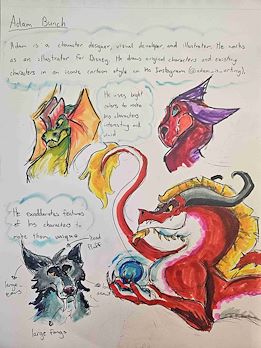 Adam Bunch
Adam is a character designer, visual developer, and illustrator. He works
as an illustrator for Disney. He draws original characters and existing
characters in an iconic cartoon style on his Instagram
He uses bright
colors to make
his characters
interesting and
vivid
He exaggerates features
of his characters to
make them unique
head
fluff
large
ears
large fangs